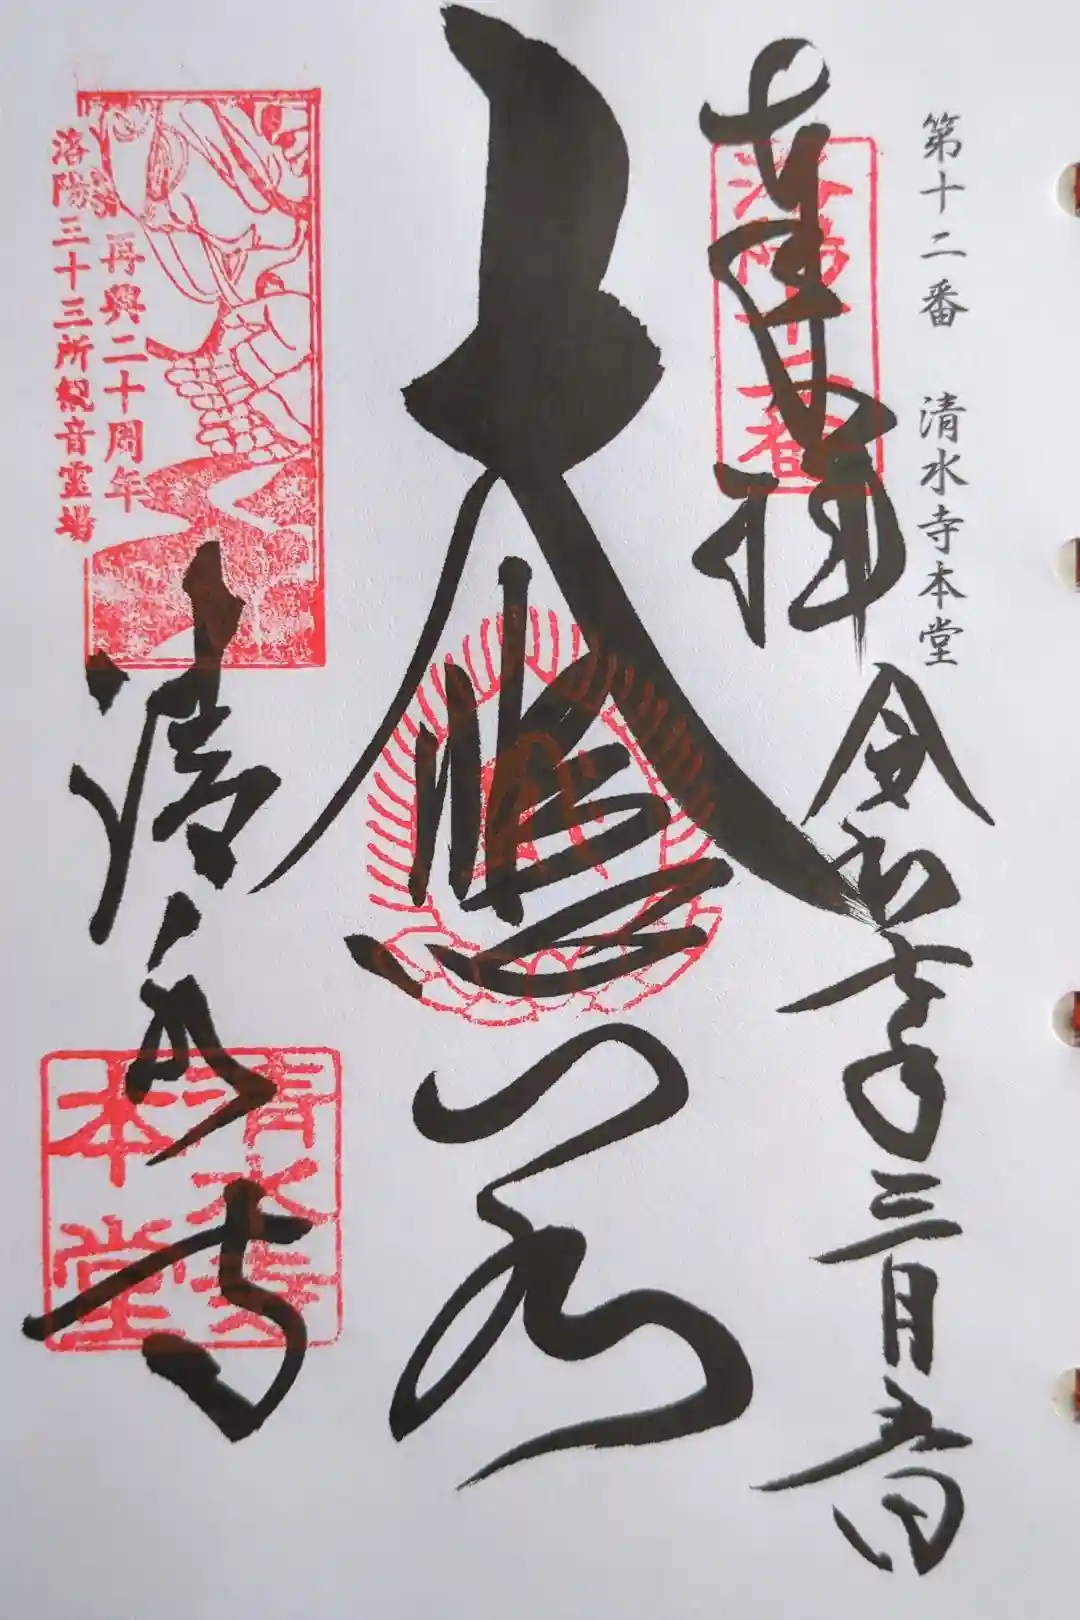 第十二番 清水寺本堂
奉拝
洛陽十二番
令和七年三月五日
大悲閣
清水寺
再興二十周年
洛陽三十三所観音霊場
清水寺
本堂